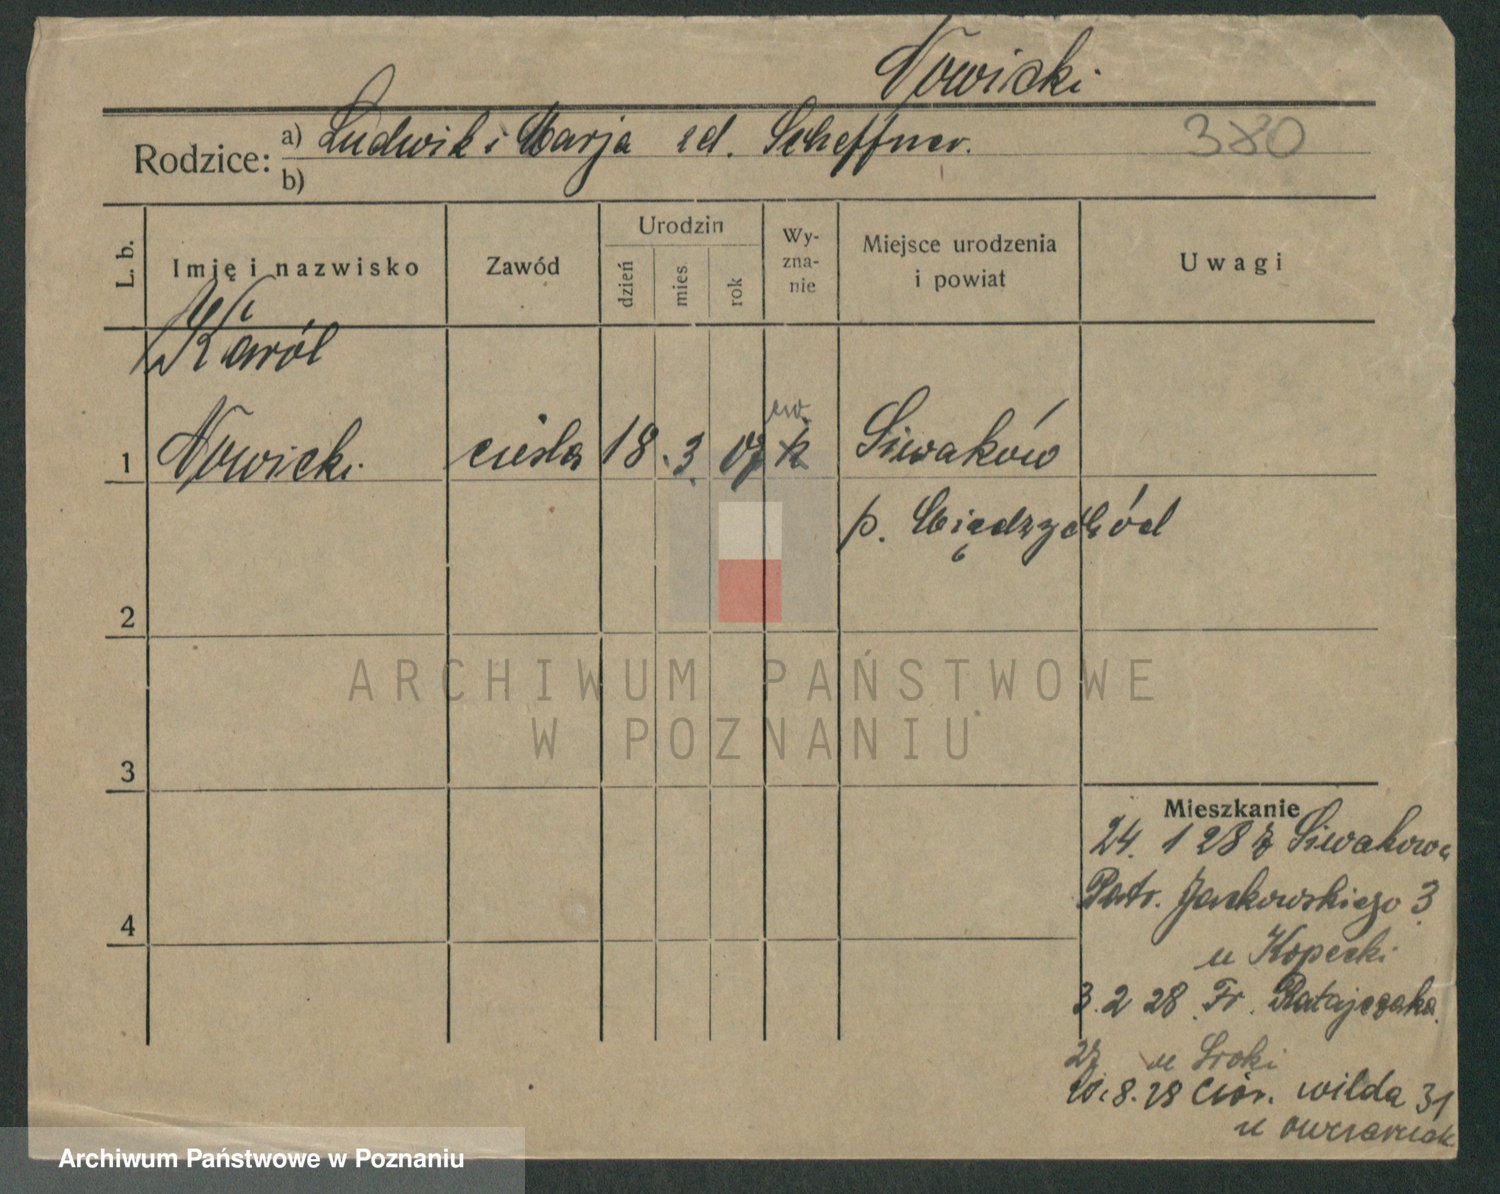 Nowicki
Rodzice: a) Ludwik i Marja zd. Scheffner. 380
b)
L. b. Imię i nazwisko Zawód Urodzin dzień mies. rok Wy-zna-nie Miejsce urodzenia i powiat Uwagi
Karól
ew.
1 Nowicki cieśla 18. 3. 07 k Siwaków
p. Międzychód
2
ARCHIWUM PAŃSTWOWE
W POZNANIU
3
Mieszkanie
24. 1 28 z Siwakowa
Patr. Jackowskiego 3
4
u Kopecki
3. 2 28 Fr. Ratajczaka
27 u Sroki
10. 8. 28 wilda 31
u
Archiwum Państwowe w Poznaniu